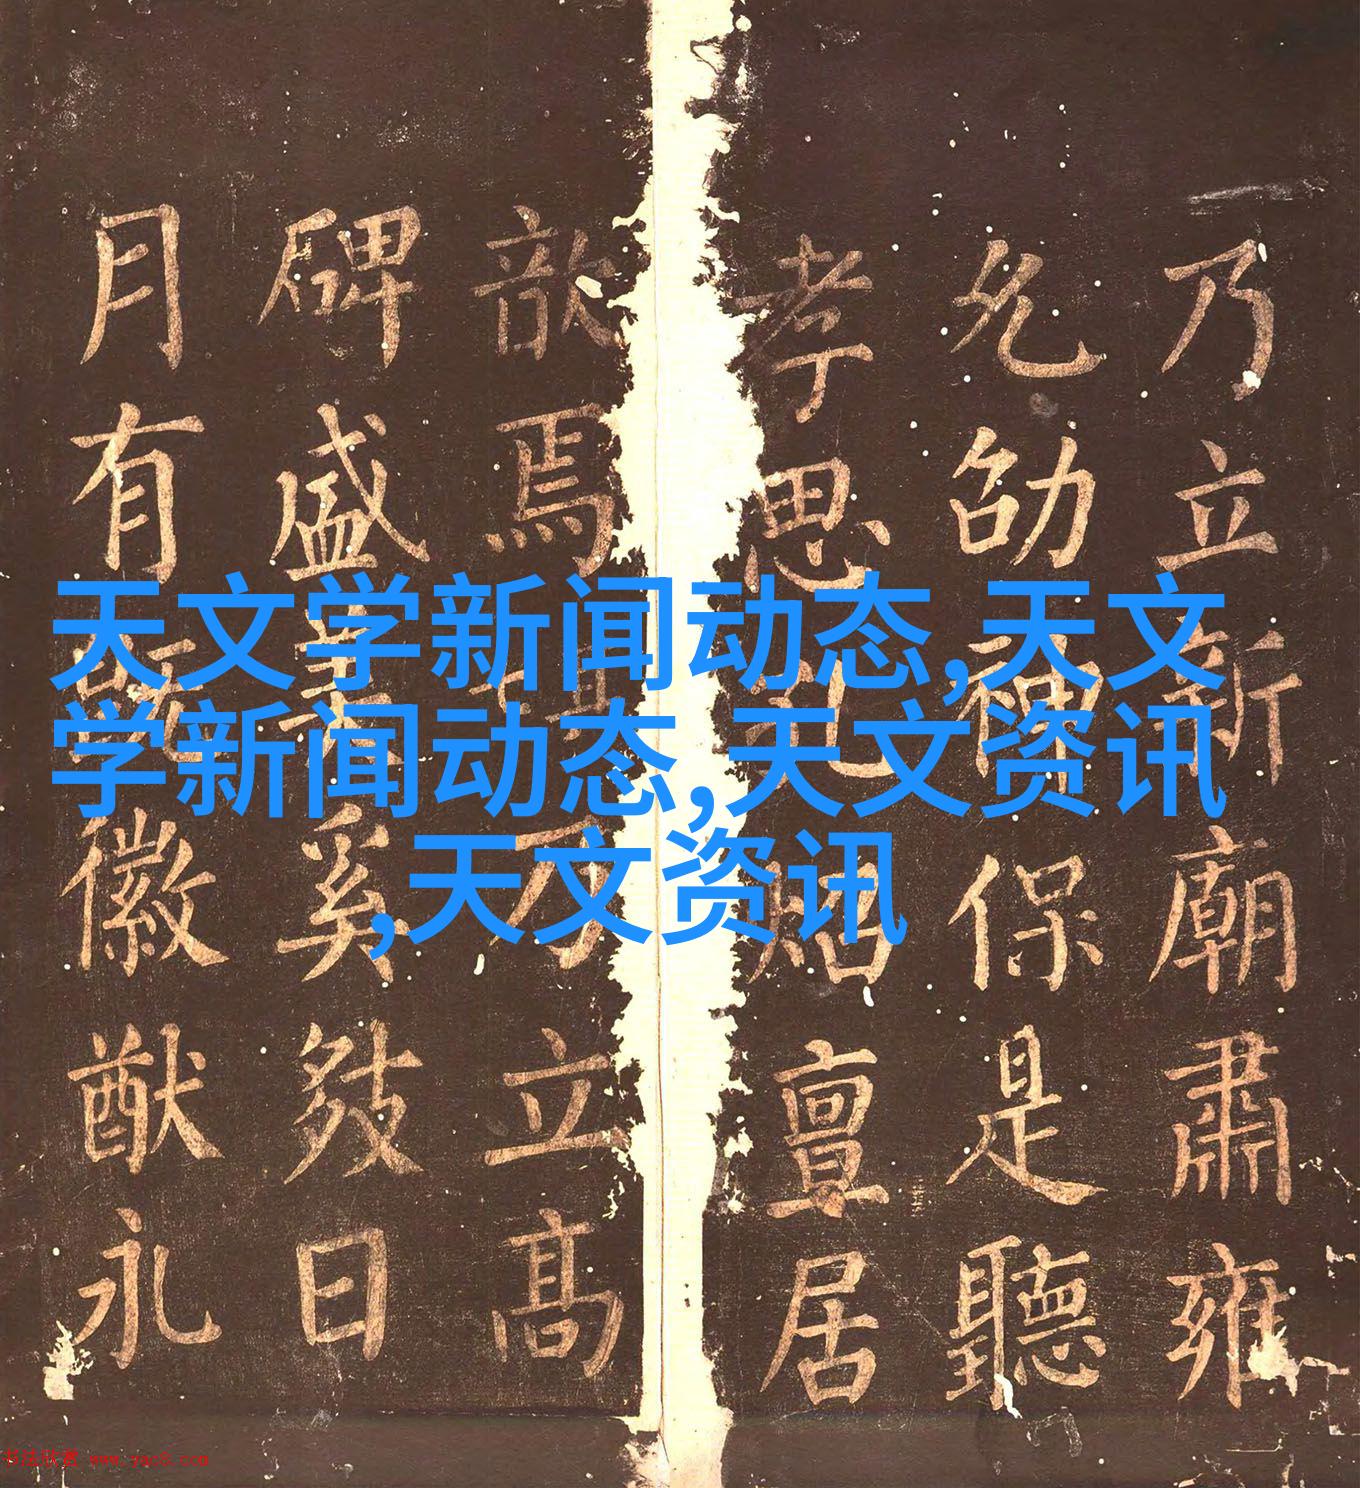 天文学新闻动态,天文
学新闻动态,天文资讯
,天文资讯
乃立新廟肅雍
允劭神保是聽
孝思孔昭亶居
歆焉乃立高
碑盛美奚敥日
月有徽猷永
书法欣赏 www.yac8.com